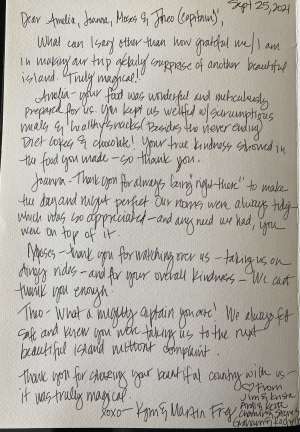 Sept 25, 2021
Dear Amelia, Joanna, Moses & Theo (captain),
What can I say other than how grateful me/I am
in making our trip a daily surprise of another beautiful
island. Truly magical!
Amelia - your food was wonderful and meticulously
prepared for us. You kept us well fed w/ scrumptious
meals & healthy snacks! Besides the never ending
Diet cokes & chocolate! Your true kindness showed in
the food you made - so thank you.
Joanna - Thank you for always being "right there" to make
the day and night perfect. Our rooms were always tidy
which was so appreciated - and any need we had, you
were on top of it.
Moses - thank you for watching over us - taking us on
dingy rides - and for your overall kindness - We can't
thank you enough!
Theo - What a mighty captain you are! We always felt
safe and knew you were taking us to the next
beautiful island without complaint.
Thank you for sharing your beautiful country with us -
it was truly magical.
♡ From
Jim &
xoxo - Kym & Martin